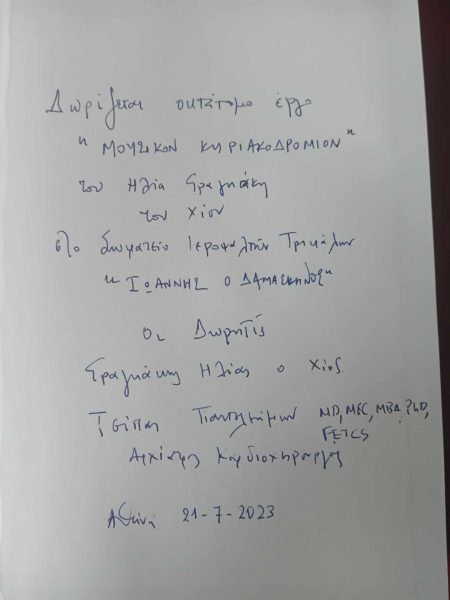 Δωρίζεται οκτάτομο έργο
"ΜΟΥΣΙΚΟΝ ΚΥΡΙΑΚΟΔΡΟΜΙΟΝ"
του Ηλία Φραγκάκη
του Χίου
στο σωματείο Ιεροψαλτών Τρικάλων
"ΙΩΑΝΝΗΣ Ο ΔΑΜΑΣΚΗΝΟΣ"
Οι Δωρητές
Φραγκάκης Ηλίας ο Χίος.
Τσίπας Παντελεήμων MD, MSC, MBA PhD,
FETCS
Αρχίατρος Καρδιοχειρουργός
Αθήνα 21-7-2023